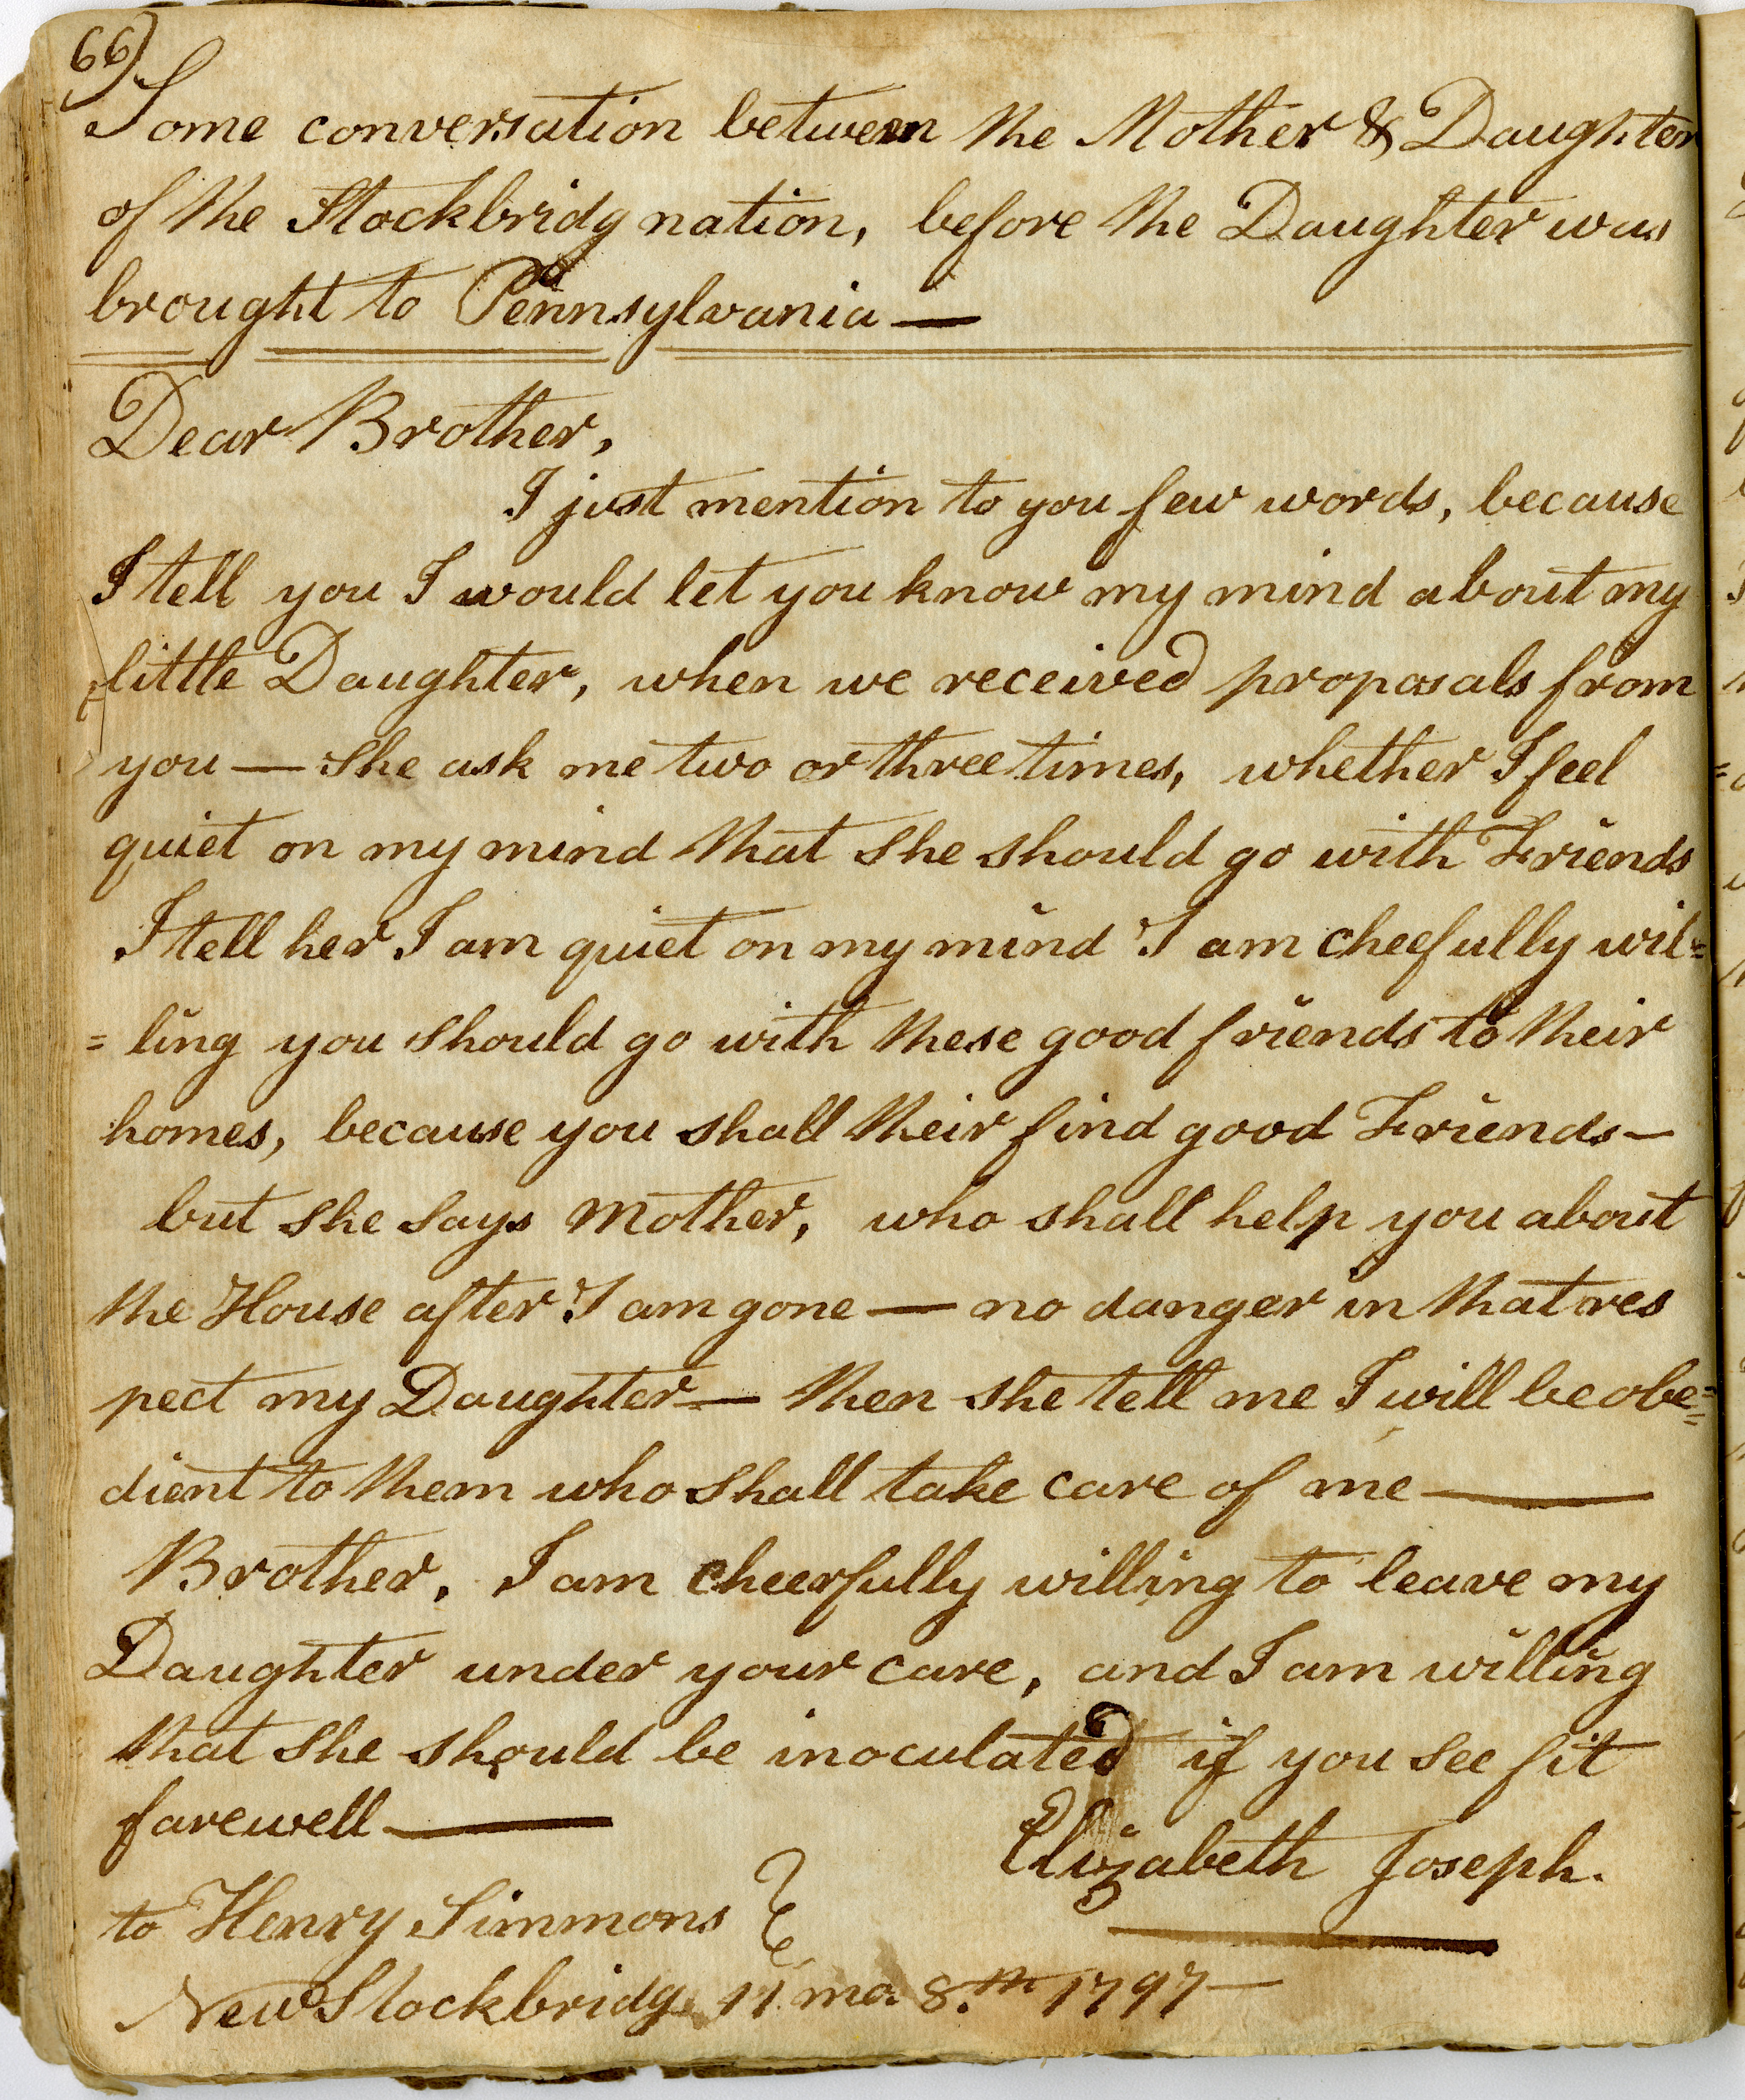 66)
Some conversation between the Mother & Daughter
of the Stockbridg nation, before the Daughter was
brought to Pennsylvania —
Dear Brother,
I just mention to you few words, because
I tell you I would let you know my mind about my
little Daughter, when we received proposals from
you — She ask me two or three times, whether I feel
quiet on my mind that She should go with Friends
I tell her I am quiet on my mind I am cheefully wil=
= ling you should go with these good friends to their
homes, because you shall their find good Friends —
but She Says Mother, who shall help you about
the House after I am gone — no danger in that res
pect my Daughter — then She tell me I will be obe=
dient to them who Shall take care of me —
Brother, I am cheerfully willing to leave my
Daughter under your care, and I am willing
that She should be inoculated if you See fit
farewell —
Elizabeth Joseph.
to Henry Simmons }
New Stockbridge 11 mo. 8.th 1797 —